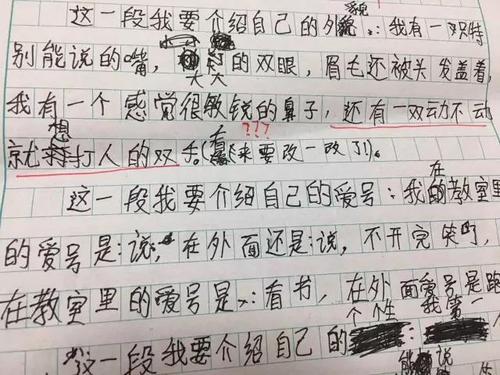 这一段我要介绍自己的外貌:我有一双特
别能说的嘴,大大的双眼,眉毛还被头发盖着,
我有一个感觉很敏锐的鼻子,还有一双动不动
???
就想打人的双舌(看来要改一改了)。
这一段我要介绍自己的爱号:我在教室里
的爱号是:说,在外面还是:说,不开完笑啊,
在教室里的爱号是:看书,在外面爱号是跑
这一段我要介绍自己的个性:我第一
能说